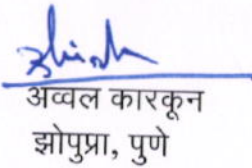 अव्वल कारकून
झोपुप्रा, पुणे